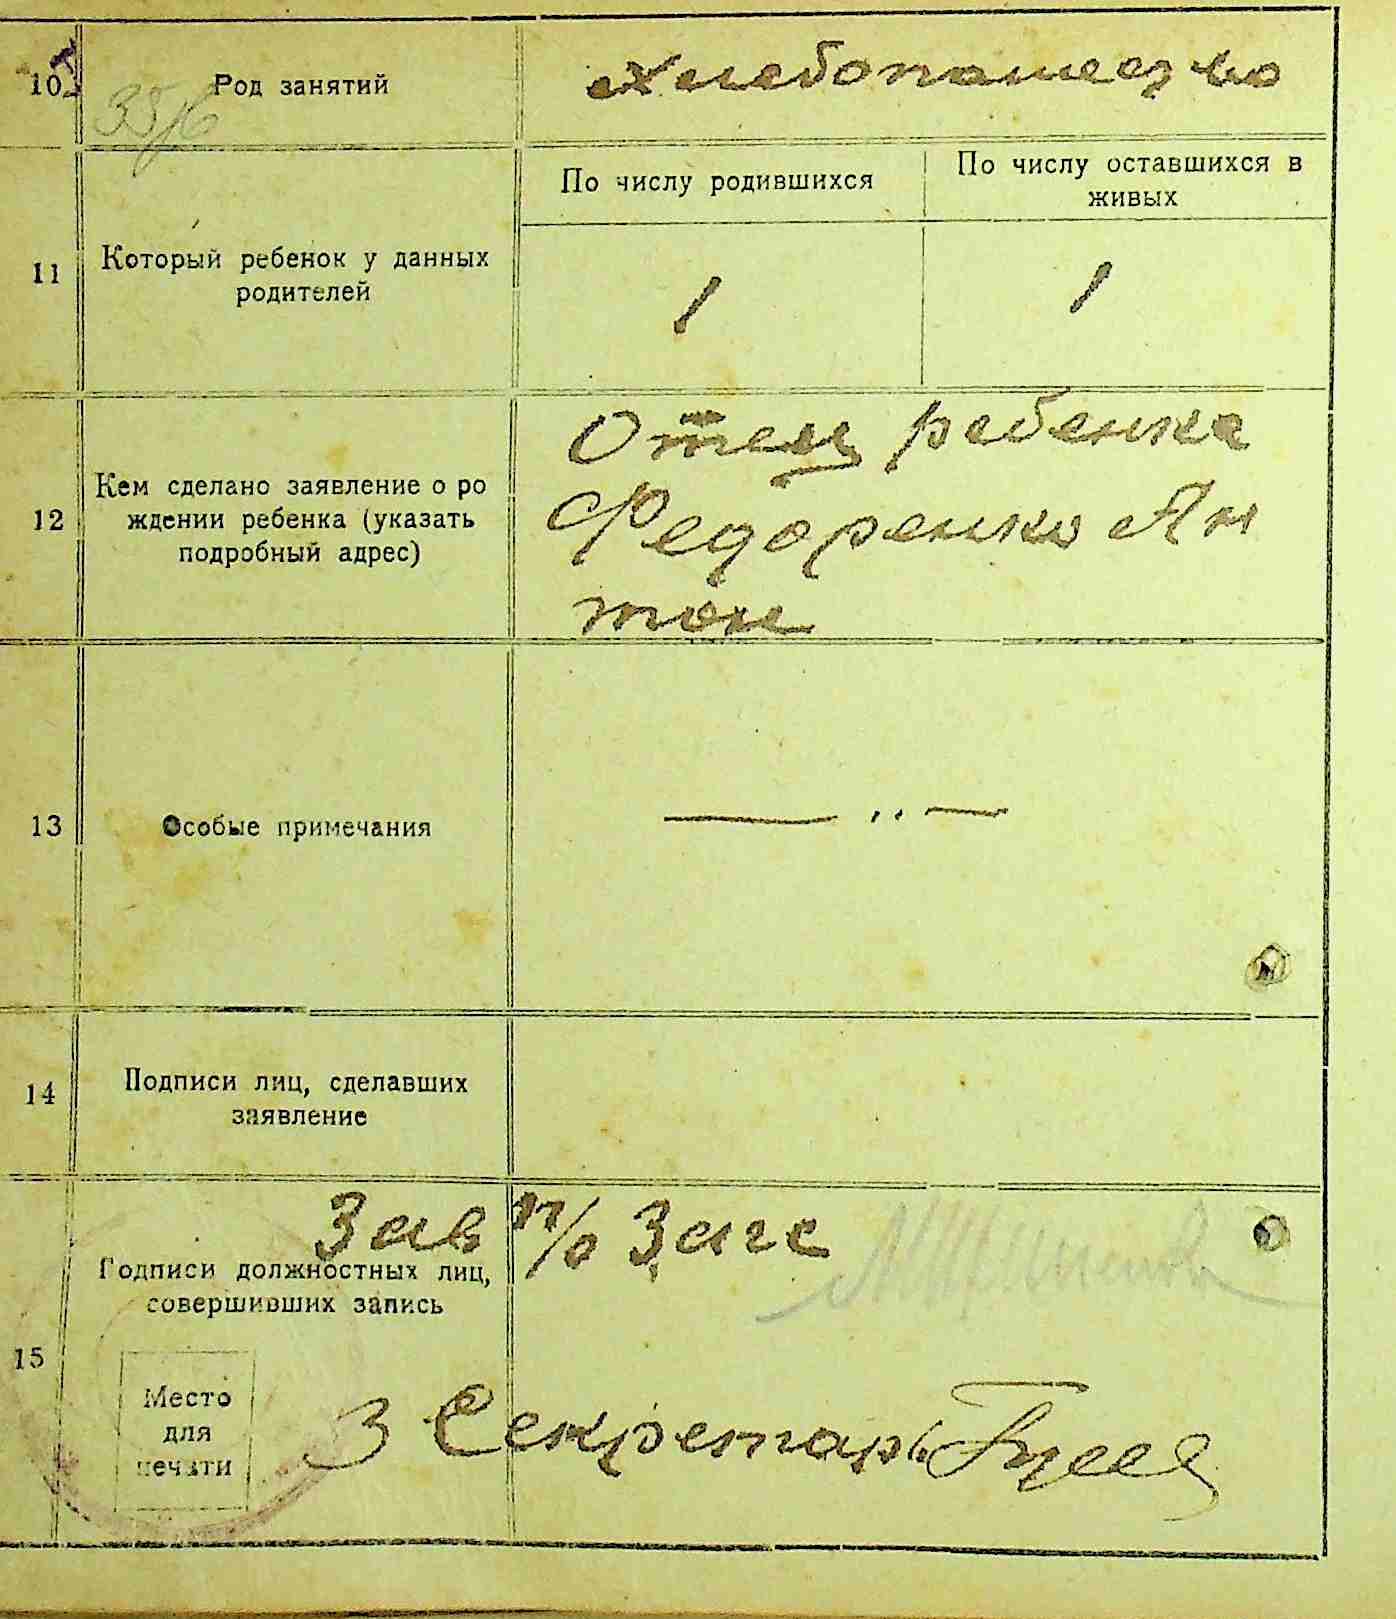 10
Род занятий
хлебопашество
35/6
По числу родившихся
По числу оставшихся в
живых
11
Который ребенок у данных
родителей
1
1
12
Кем сделано заявление о ро
ждении ребенка (указать
подробный адрес)
Отец ребенка
Федоренко Ан
тон
13
Особые примечания
14
Подписи лиц, сделавших
заявление
Зав п/о Загс
Подписи должностных лиц,
совершивших запись
15
Место
для
печати
Секретарь